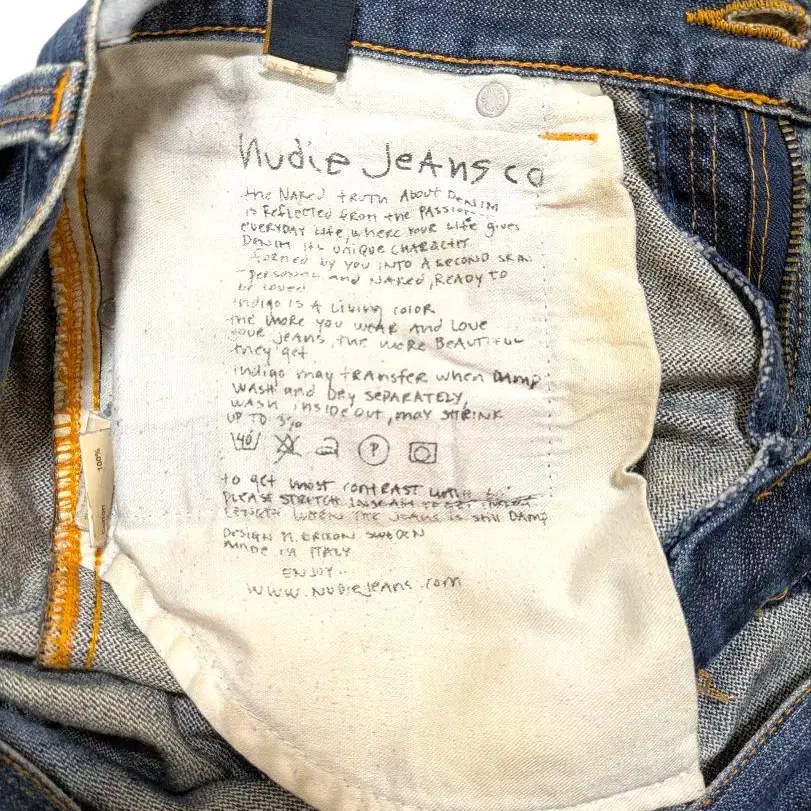 Nudie Jeans co
the NAKED tRUtH About DENIM
is Reflected from the PASSION
EVERYDAY Life, where YOUR Life gives
DENIM its UNIQUE CHARACTER
formed by you INTO A SECOND SKIN
personal and NAKED, READY TO
be loved
indigo is A Living COLOR
the more you WEAR AND LOVE
YOUR JEANS, the more BEAUTIFUL
they get
indigo may tRANSFER when DAMP
WASH and DRY SEPARATELY,
WASH inside out, may SHRINK
UP TO 3%
40 P
to get most CONTRAST
PLEASE STRETCH INSEAM
LENGTH WHEN THE JEANS is still DAMP
DESIGN M. ERIXON SWEDEN
MADE IN ITALY
ENJOY..
WWW.NUDIEJEANS.COM
100%